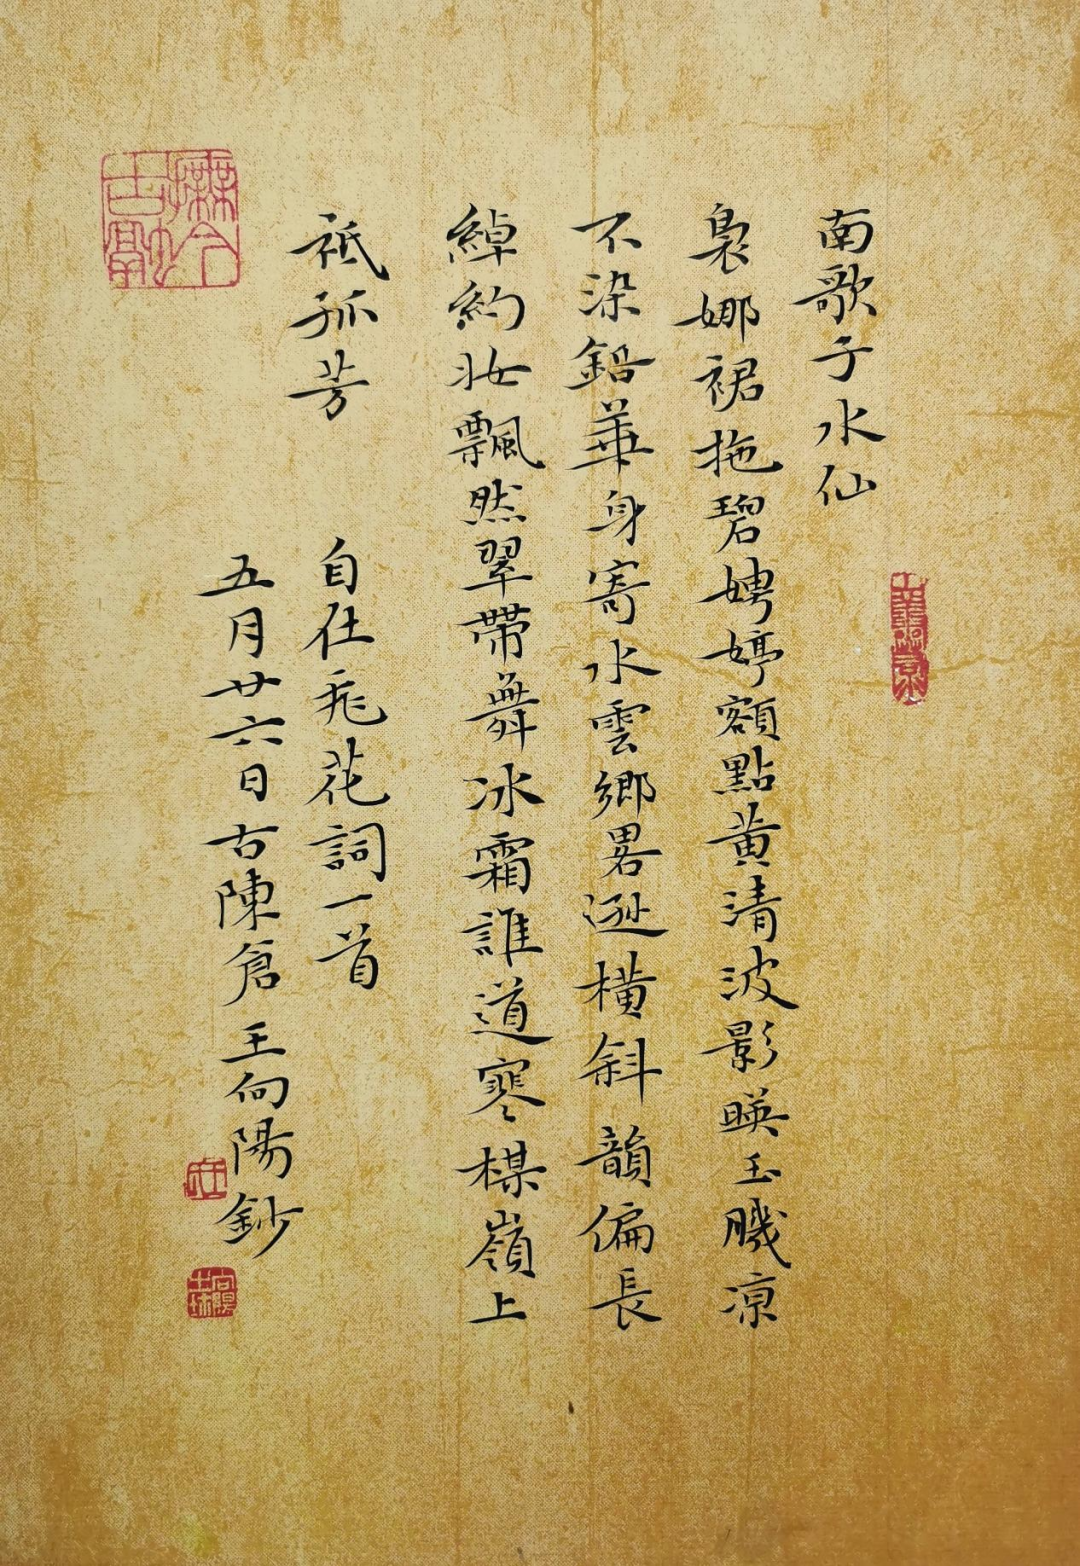 南歌子水仙
裊娜裙拖碧娉婷額點黃清波影暎玉肌凉
不染鉛華身寄水雲鄉畧遜橫斜韻偏長
綽約妝飄然翠帶舞冰霜誰道寒楳嶺上
祗孤芳
自在飛花詞一首
五月廿六日古陳倉王向陽鈔